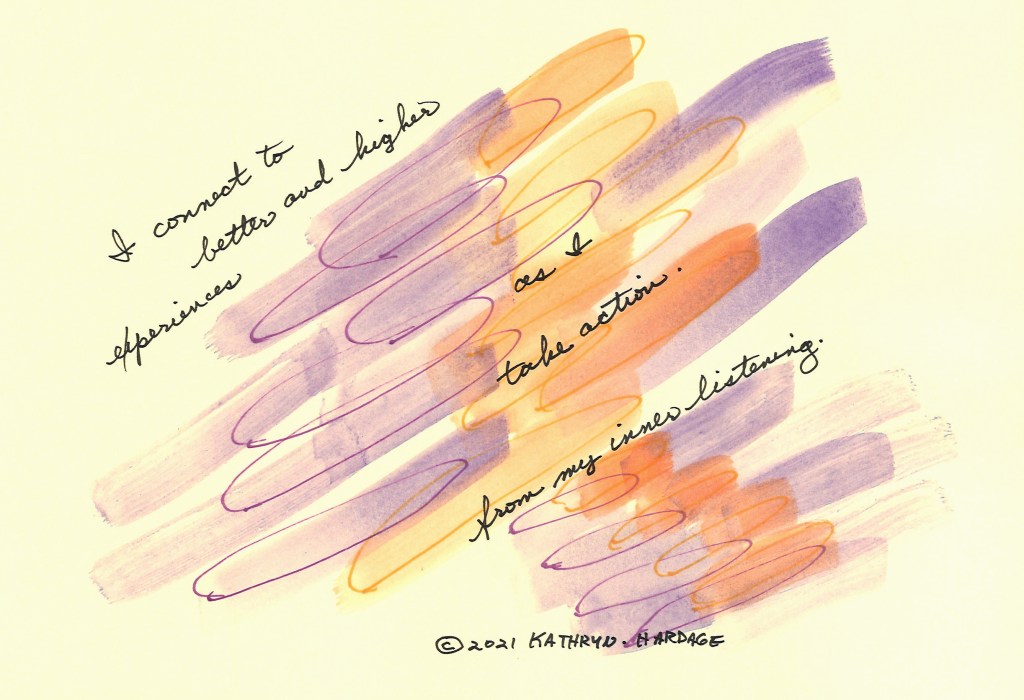 I connect to
better and higher
experiences
as I
take action.
from my inner listening.
© 2021 KATHRYN HARDAGE